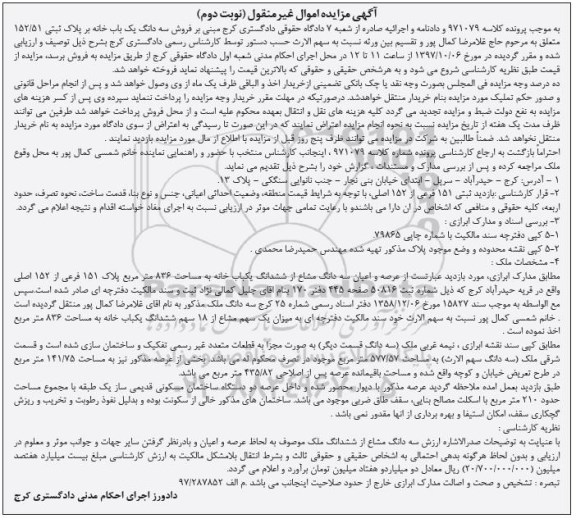 آگهی مزایده اموال غیر منقول (نوبت دوم)
به موجب پرونده کلاسه ۹۷۱۰۷۹ و دادنامه و اجرائیه صادره از شعبه ۷ دادگاه حقوقی دادگستری کرج مبنی بر فروش سه دانگ یک باب خانه بر پلاک ثبتی ۱۵۲/۵۱
متعلق به مرحوم حاج غلامرضا کمال پور و تقسیم بین ورثه نسبت به سهم الارث حسب دستور توسط کارشناس رسمی دادگستری کرج بشرح ذیل توصیف و ارزیابی
شده و مقرر گردیده در مورخ ۱۳۹۷/۱۰/۰۶ از ساعت ۱۱ تا ۱۲ در محل اجرای احکام مدنی شعبه اول دادگاه حقوقی کرج از طریق مزایده به فروش برسد، مزایده از
قیمت طبق نظریه کارشناسی شروع می شود و به هرشخص حقیقی و حقوقی که بالاترین قیمت را پیشنهاد نماید فروخته خواهد شد.
ده درصد وجه مزایده فی المجلس بصورت وجه نقد یا چک بانکی تضمینی ازخریدار اخذ و الباقی ظرف یک ماه از وی وصول خواهد شد و پس از انجام مراحل قانونی
و صدور حکم تملیک مورد مزایده بنام خریدار منتقل خواهدشد. درصورتیکه در مهلت مقرر خریدار وجه مزایده را پرداخت ننماید سپرده وی پس از کسر هزینه های
مزایده به نفع دولت ضبط و مزایده تجدید می گردد کلیه هزینه های نقل و انتقال بعهده محکوم علیه است و از محل فروش پرداخت خواهد شد طرفین می توانند
ظرف مدت یک هفته از تاریخ مزایده نسبت به نحوه انجام مزایده اعتراض نمایند که در این صورت تا رسیدگی به اعتراض از سوی دادگاه مورد مزایده به نام خریدار
منتقل نخواهد شد. ضمناً طالبین به شرکت در مزایده می توانند ظرف پنج روز قبل از مزایده با اطلاع از مال مورد مزایده بازدید نمایند .
احتراماً بازگشت به ارجاع کارشناسی پرونده شماره کلاسه ۹۷۱۰۷۹ ، اینجانب کارشناس منتخب با حضور و راهنمایی نماینده خانم شمسی کمال پور به محل وقوع
ملک مراجعه کرده و پس از بررسی مدارک و مستندات ، گزارش خود را بشرح ذیل تقدیم می نماید.
۱ – آدرس: کرج – حیدرآباد – سرپل – ابتدای خیابان بنی نجار – جنب نانوایی سنگکی – پلاک ۱۳.
۲- قرار کارشناسی :بازدید ثبتی ۱۵۱ فرعی از ۱۵۲ اصلی، با توجه به شرایط قیمت منطقه، وضعیت احداثی اعیانی، جنس و نوع بنا، قدمت ساخت، نحوه تصرف، حدود
اربعه، کلیه حقوقی و منافعی که اشخاص در آن دارا می باشندو با رعایت تمامی جهات موثر در ارزیابی نسبت به اجرای مفاد خواسته اقدام و نتیجه اعلام می گردد.
۳- بررسی اسناد و مدارک ابرازی :
۵-۱ کپی دفترچه سند مالکیت با شماره چاپی ۷۹۸۶۵
۵-۲ کپی نقشه محدوده و وضع موجود پلاک مذکور تهیه شده مهندس حمیدرضا محمدی .
۴- مشخصات ملک :
مطابق مدارک ابرازی، مورد بازدید عبارتست از عرصه و اعیان سه دانگ مشاع از ششدانگ یکباب خانه به مساحت ۸۳۶ متر مربع پلاک ۱۵۱ فرعی از ۱۵۲ اصلی
واقع در قریه حیدرآباد کرج که ذیل شماره ثبت ۵۰۸۱۶ صفحه ۴۴۵ دفتر ۱۷۰ بنام آقای جلیل کمالی نژاد ثبت و سند مالکیت دفترچه ای صادر شده است.سپس
مع الواسطه به موجب سند ۱۵۸۲۷ مورخ ۱۳۵۸/۱۲/۰۶ دفتر اسناد رسمی شماره ۲۵ کرج سه دانگ ملک مذکور به نام آقای غلامرضا کمال پور منتقل گردیده است
. خانم شمسی کمال پور نسبت به سهم الارث خود سند مالکیت دفترچه ای به میزان یک سهم مشاع از ۱۸ سهم ششدانگ یکباب خانه به مساحت ۸۳۶ متر مربع
اخذ نموده است .
مطابق کپی سند نقشه ابرازی ، نیمه غربی ملک (سه دانگ قسمت دیگر) به صورت مجزا به قطعات متعدد غیر رسمی تفکیک و ساختمان سازی شده است و قسمت
شرقی ملک (سه دانگ سهم الارث) به مساحت ۵۷۷/۵۷ متر مربع موجود در تصرف محکوم له می باشد.بخشی از عرصه مذکور نیز به مساحت ۱۴۱/۷۵ متر مربع
در طرح تعریض خیابان و کوچه واقع شده و مساحت باقیمانده عرصه پس از اصلاحی ۴۳۵/۸۲ متر مربع می باشد.
طبق بازدید بعمل امده ملاحظه گردید عرصه مذکور با دیوار محصور شده و داخل عرصه دو دستگاه ساختمان مسکونی قدیمی ساز یک طبقه با مجموع مساحت
حدود ۲۱۰ متر مربع با اسکلت مصالح بنایی، سقف طاق ضربی موجود می باشد. ساختمان های مذکور خالی از سکونت بوده و بدلیل نفوذ رطوبت و تخریب و ریزش
گچکاری سقف، امکان استیفا و بهره برداری از آنها مقدور نمی باشد .
نظریه کارشناسی :
با عنایت به توضیحات صدرالاشاره ارزش سه دانگ مشاع از ششدانگ ملک موصوف به لحاظ عرصه و اعیان و بادرنظر گرفتن سایر جهات و جوانب موثر و معلوم در
ارزیابی و بدون لحاظ هرگونه بدهی احتمالی به اشخاص حقیقی و حقوقی ثالث و بشرط انتقال بلامشکل مالکیت به ارزش کارشناسی مبلغ بیست میلیارد هفتصد
میلیون (۲۰/۷۰۰/۰۰۰/۰۰۰) ریال معادل دو میلیاردو هفتاد میلیون تومان برآورد و اعلام می گردد.
تبصره : تشخیص و صحت و اصالت مدارک ابرازی خارج از حدود صلاحیت اینجانب می باشد .م الف ۹۷/۲۸۷۸۵۲
دادورز اجرای احکام مدنی دادگستری کرج